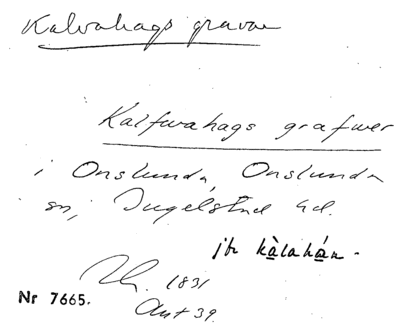 Kalvahags gravar
Kalfwahags grafwer
i Onslunda, Onslunda
sn, Ingelstad hd.
jfr kàlahán.
1831
Nr 7665.
Ant 39.